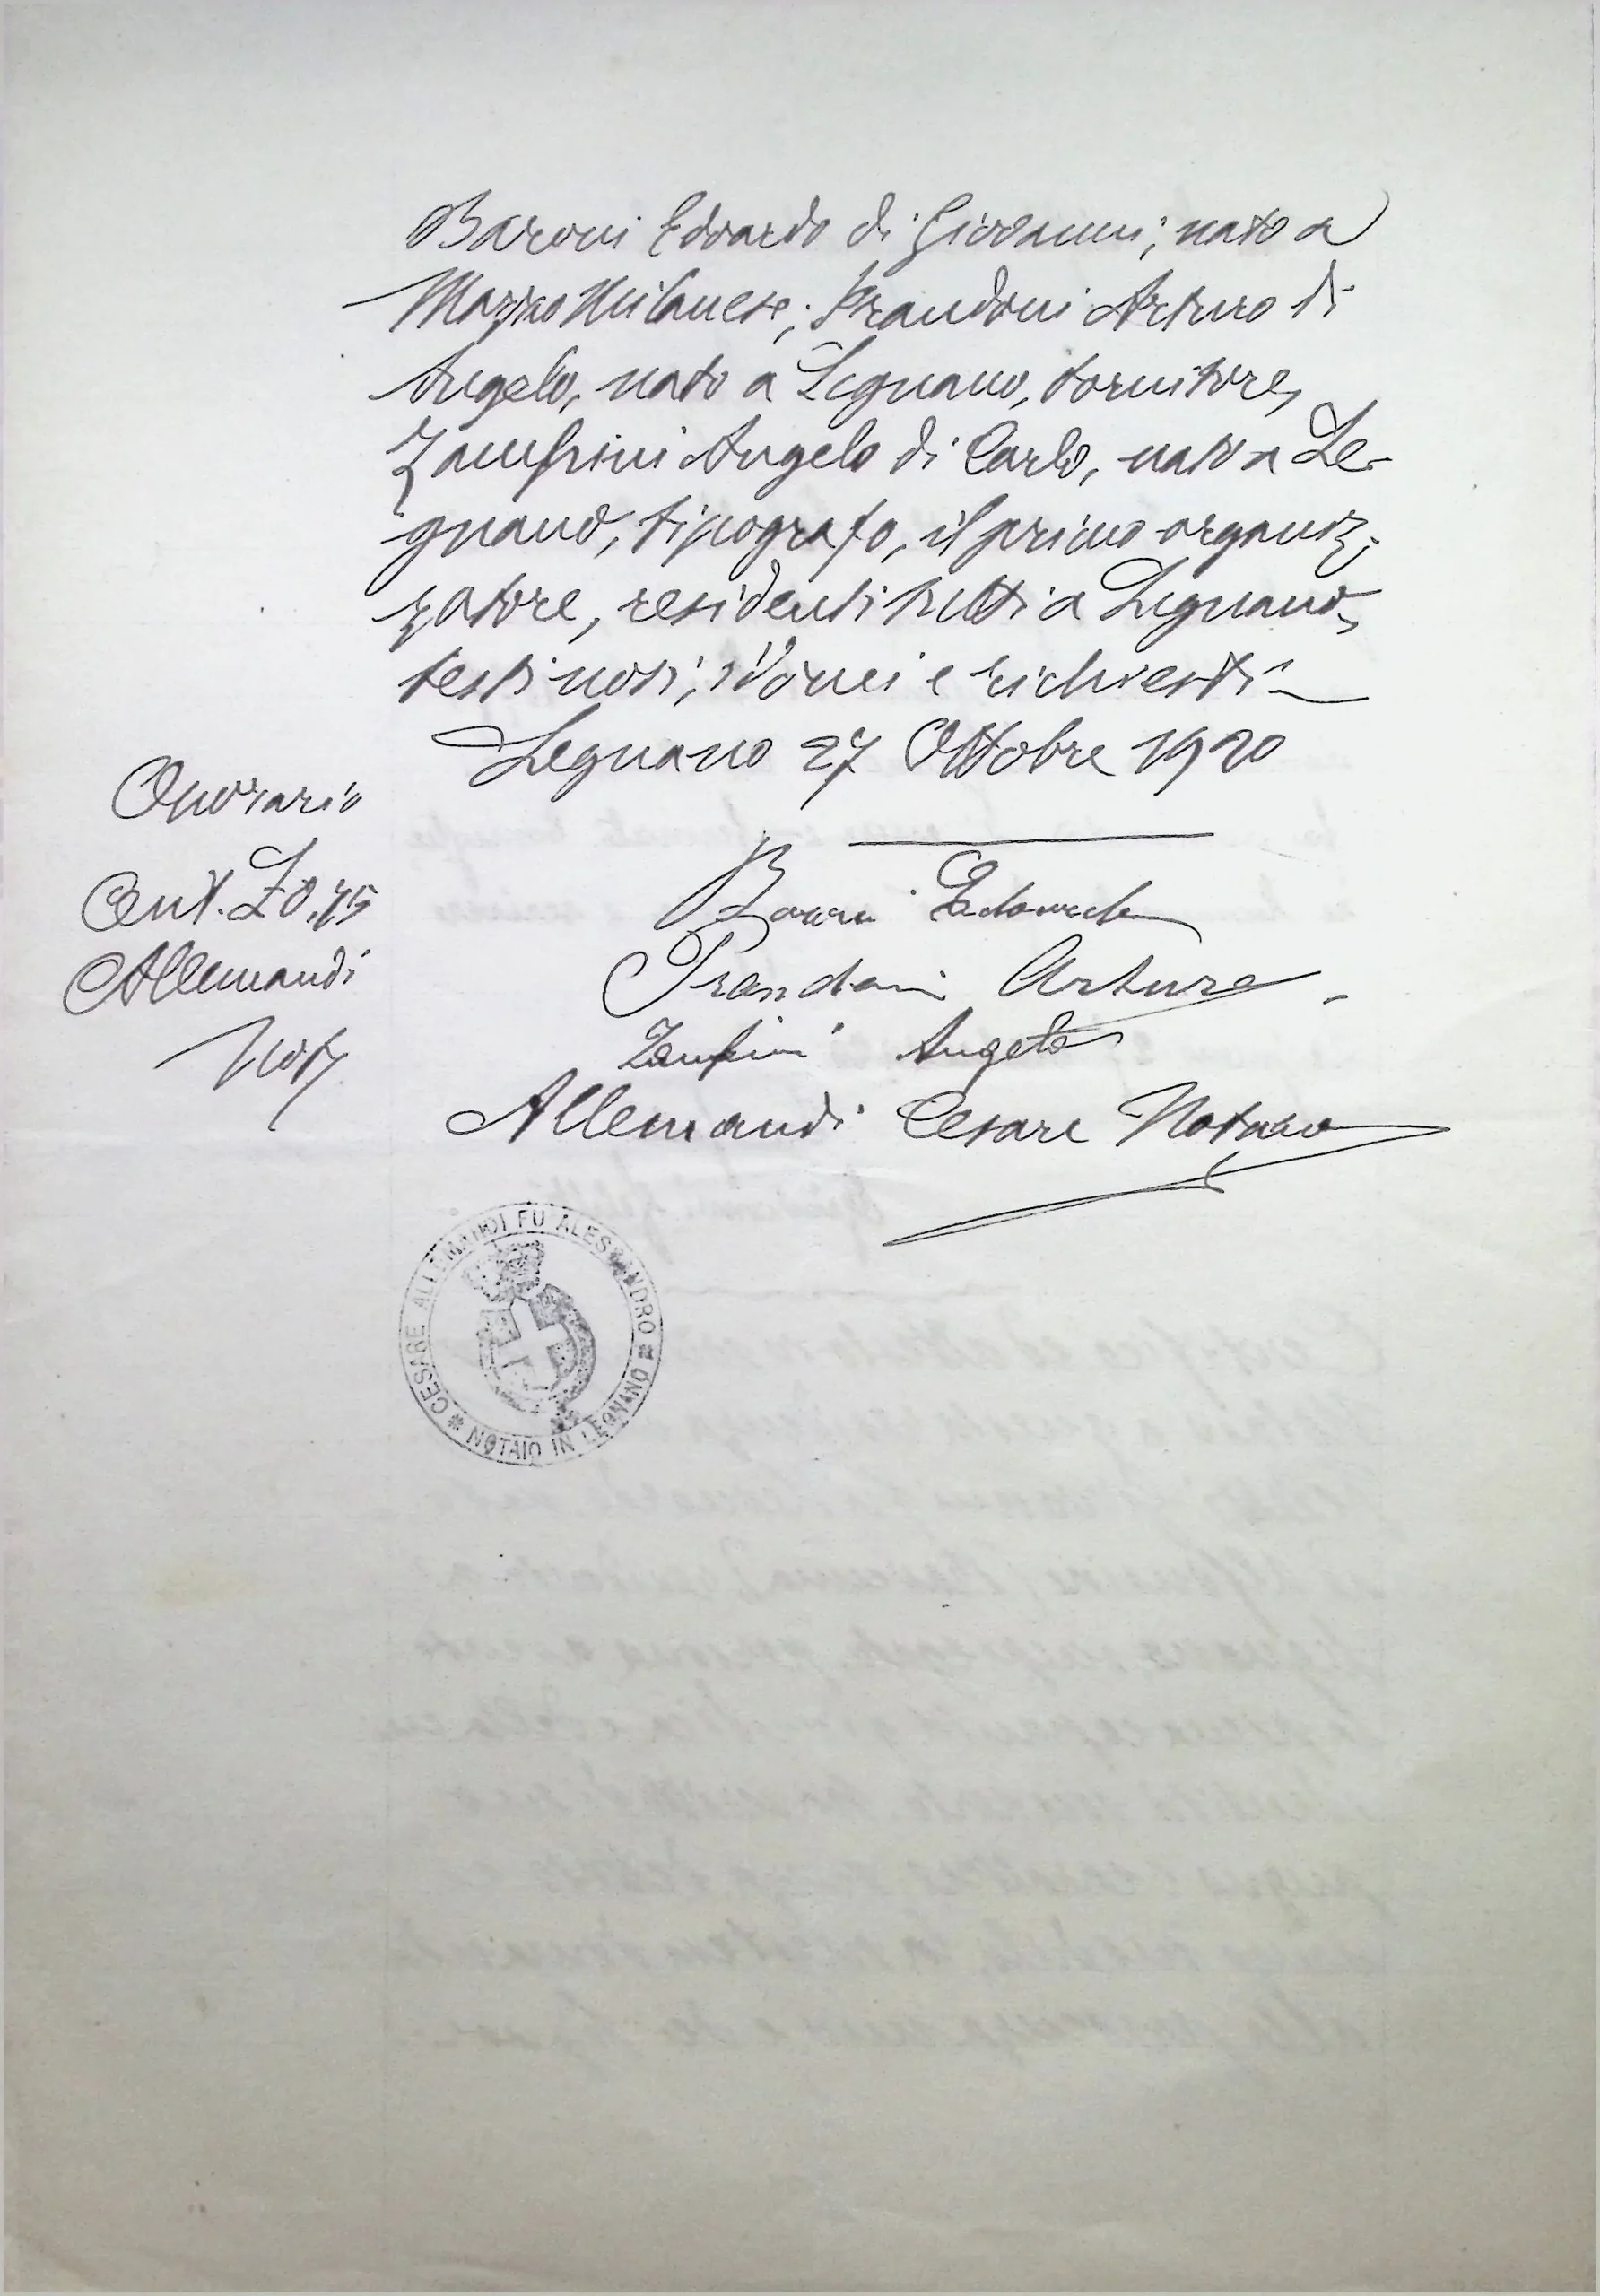 Baroni Edoardo di Giovanni, nato a
Mazzo Milanese; Prandoni Arturo di
Angelo, nato a Legnano, tornitore,
Zanfrini Angelo di Carlo, nato a Le-
gnano, tipografo, il primo organiz-
zatore, residenti tutti a Legnano,
testi noti, idonei e richiesti
Legnano 27 Ottobre 1920
Onorario
Cent. L 0,75
Allemandi
Not
Baroni Edoardo
Prandoni Arturo
Zanfrini Angelo
Allemandi Cesare Notaio
CESARE ALLEMANDI FU ALESSANDRO * NOTAIO IN LEGNANO *